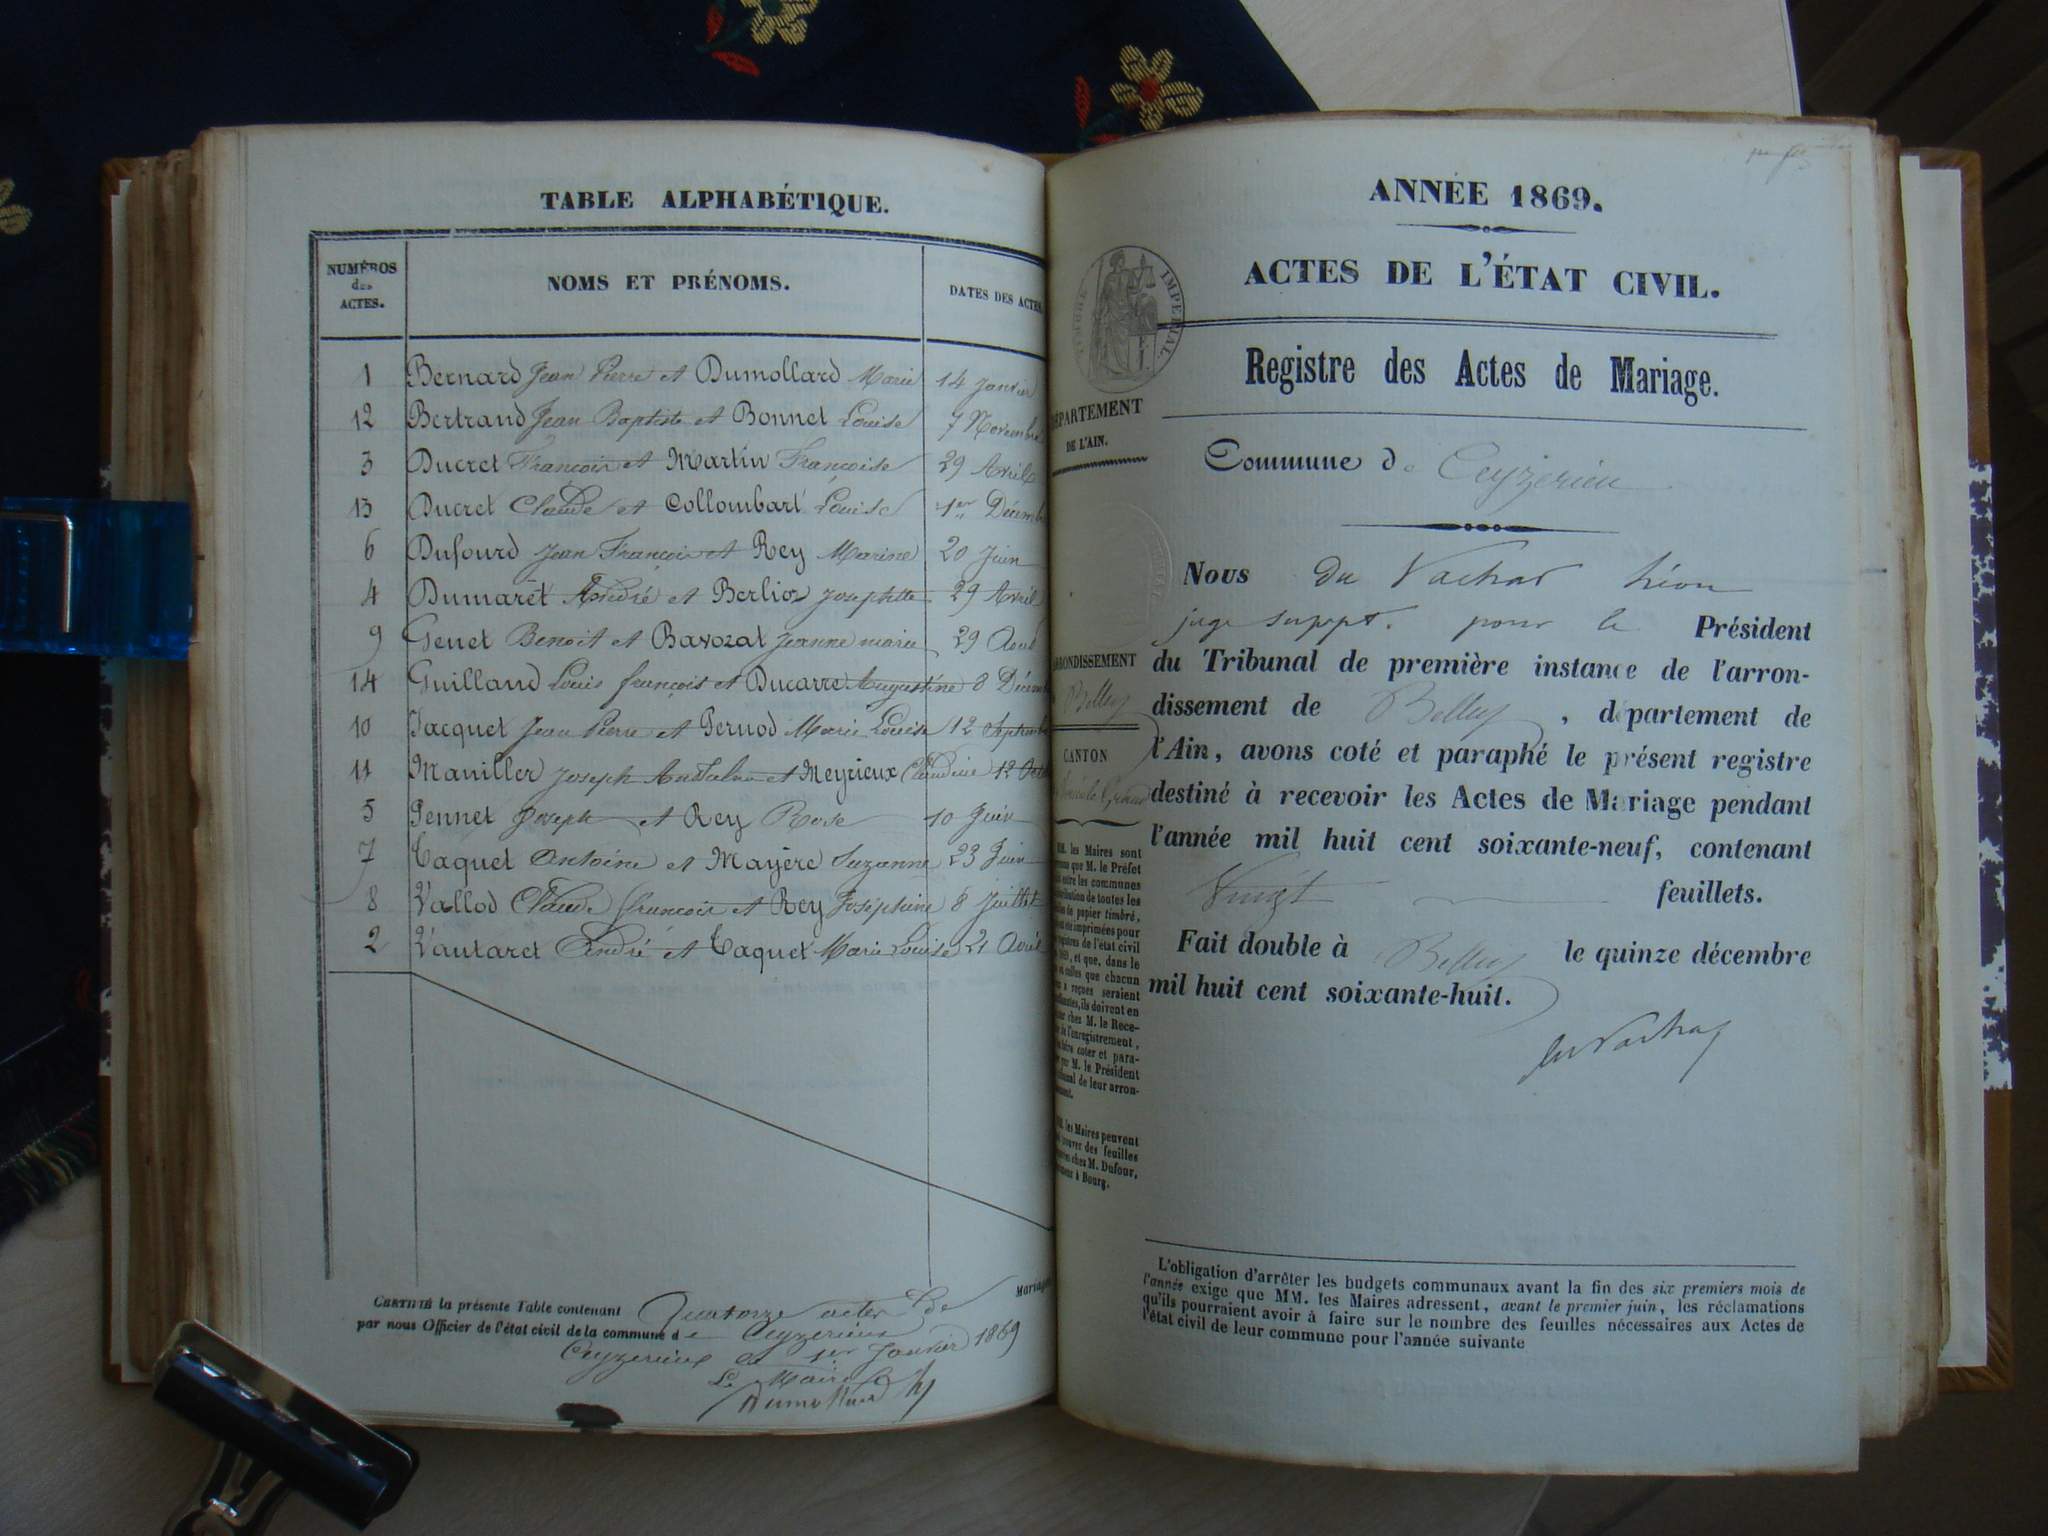 TABLE ALPHABÉTIQUE.
NUMÉROS des ACTES. NOMS ET PRÉNOMS. DATES DES ACTES
1 Bernard Jean Pierre et Dumollard Marie 14 Janvier
12 Bertrand Jean Baptiste et Bonnet Louise 7 Novembre
3 Ducret François et Martin Françoise 29 Avril
13 Ducret Claude et Collombart Louise 1er Décemb
6 Dufourd Jean François et Rey Marine 20 Juin
4 Dumaret André et Berlioz Josephtte 29 Avril
9 Genet Benoit et Bavozat Jeanne marie 29 Aout
14 Guilland Louis françois et Ducarre Augustine 8 Décemb
10 Jacquet Jean Pierre et Pernod Marie Louise 12 Septembre
11 Maniller Joseph Anthelme et Meyrieux Claudine 12 Octo
5 Pennet Joseph et Rey Rose 10 Juin
7 Taquet Antoine et Mayère Suzanne 23 Juin
8 Vallod Claude françois et Rey Joséphine 8 Juillet
2 Vautaret André et Taquet Marie Louise 21 Avril
CERTIFIÉ la présente Table contenant Quatorze actes de Mariage
par nous Officier de l'état civil de la commune de Ceyzerieu
Ceyzerieu le 1er Janvier 1869
Le Maire
Dumollard
ANNÉE 1869.
ACTES DE L'ÉTAT CIVIL.
TIMBRE IMPÉRIAL.
Registre des Actes de Mariage.
DÉPARTEMENT
DE L'AIN.
Commune de Ceyzerieu
Nous du Vachat Léon
juge suppt. pour le Président
du Tribunal de première instance de l'arron-
dissement de Belley, département de
l'Ain, avons coté et paraphé le présent registre
destiné à recevoir les Actes de Mariage pendant
l'année mil huit cent soixante-neuf, contenant
Vingt feuillets.
Fait double à Belley le quinze décembre
mil huit cent soixante-huit.
du Vachat
RRONDISSEMENT
Belley
CANTON
MM. les Maires sont
que M. le Préfet
entre les communes
de toutes les
de papier timbré,
été imprimées pour
registres de l'état civil
1869, et que, dans le
où celles que chacun
a reçues seraient
ils doivent en
chez M. le Rece-
de l'enregistrement,
faire coter et para-
par M. le Président
tribunal de leur arron-
MM. les Maires peuvent
trouver des feuilles
chez M. Dufour,
à Bourg.
L'obligation d'arrêter les budgets communaux avant la fin des six premiers mois de
l'année exige que MM. les Maires adressent, avant le premier juin, les réclamations
qu'ils pourraient avoir à faire sur le nombre des feuilles nécessaires aux Actes de
l'état civil de leur commune pour l'année suivante